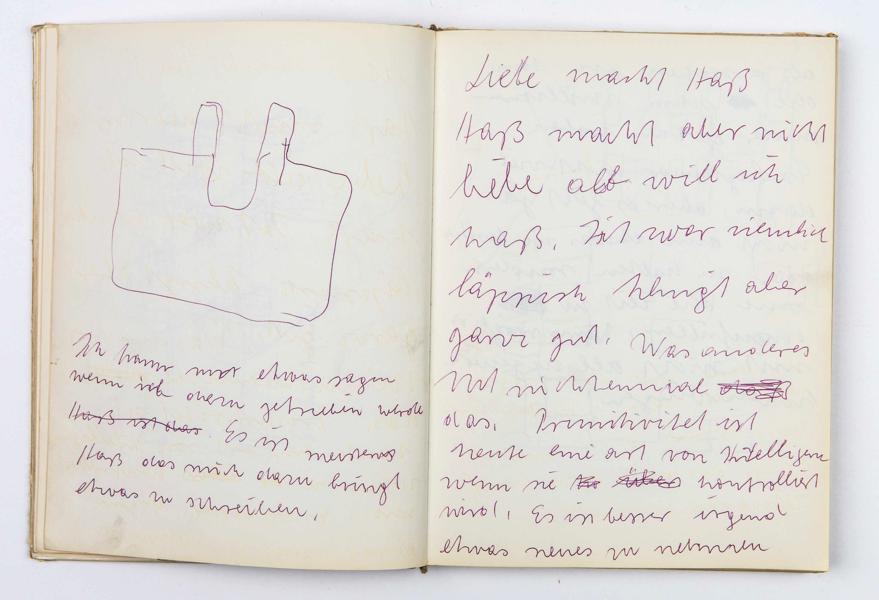 Ich kann nur etwas sagen
wenn ich dazu getrieben werde
Haß ist das. Es ist meistens
Haß das mich dazu bringt
etwas zu schreiben.
Liebe macht Haß
Haß macht aber nicht
liebe also will ich
haß. Ist zwar ziemlich
läppisch klingt aber
ganz gut. Was anderes
ist nichteinmal
das. Primitivität ist
heute eine art von Intelligenz
wenn sie kontrolliert
wird. Es ist besser irgend
etwas neues zu nehmen